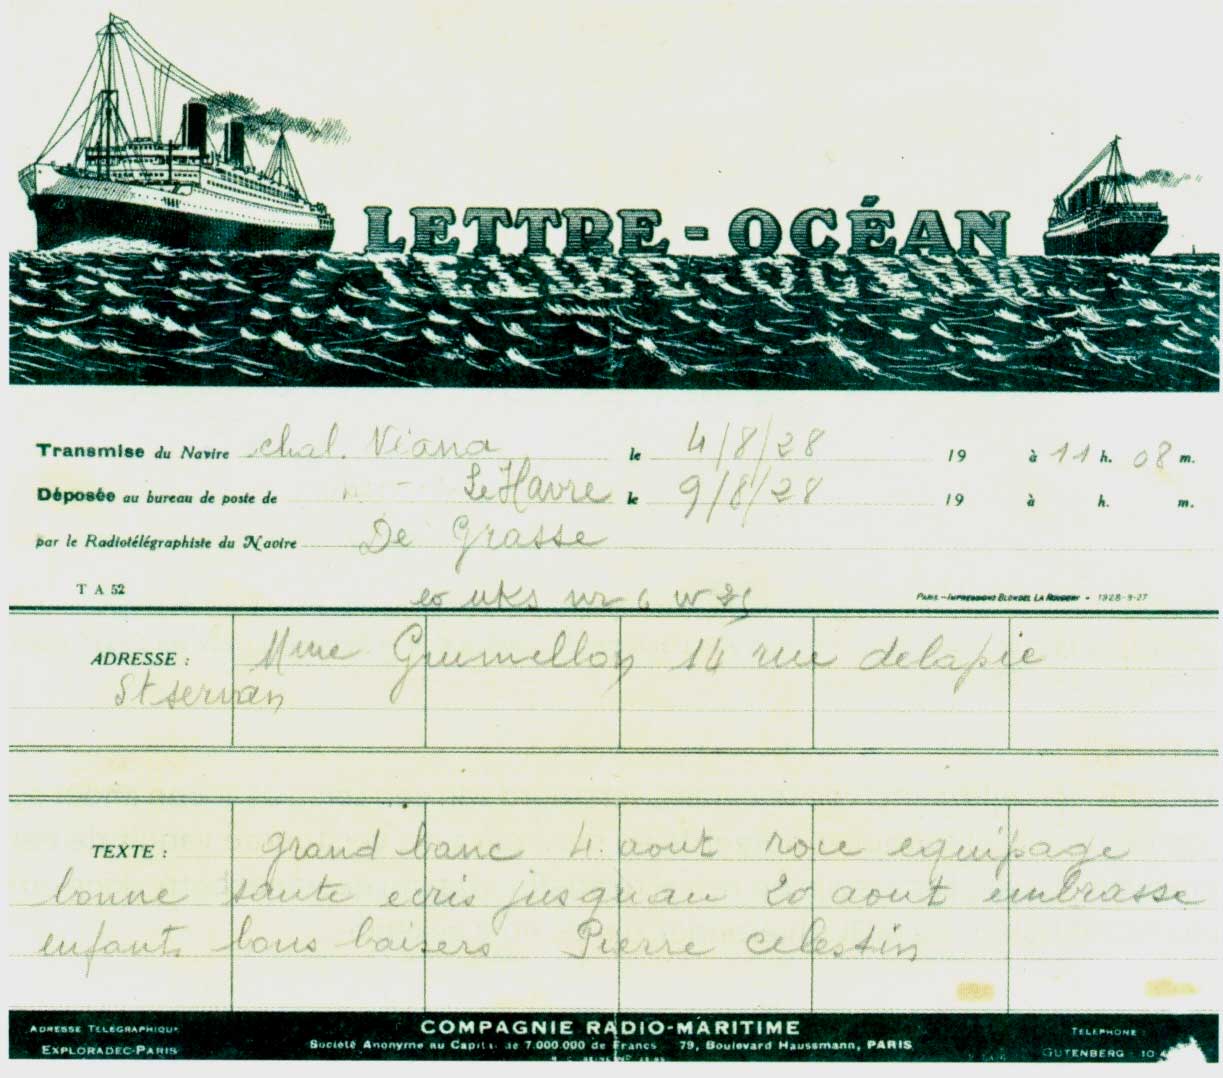 LETTRE-OCÉAN
Transmise du Navire chal. Viana le 4/8/28 19 à 11 h. 08 m.
Déposée au bureau de poste de Le Havre le 9/8/28 19 à h. m.
par le Radiotélégraphiste du Navire De Grasse
T A 52 nr 6 w PARIS.-IMPRESSIONS BLONDEL LA ROUGERY - 1928-9-27
ADRESSE : Mme Grumellon 14 rue delapie
St servan
TEXTE : grand banc 4 aout roue equipage
bonne sante ecris jusquau 20 aout embrasse
enfants bons baisers Pierre celestin
ADRESSE TÉLÉGRAPHIQUE COMPAGNIE RADIO-MARITIME TÉLÉPHONE
EXPLORADEC-PARIS Société Anonyme au Capital de 7.000.000 de Francs 79, Boulevard Haussmann, PARIS GUTENBERG 10